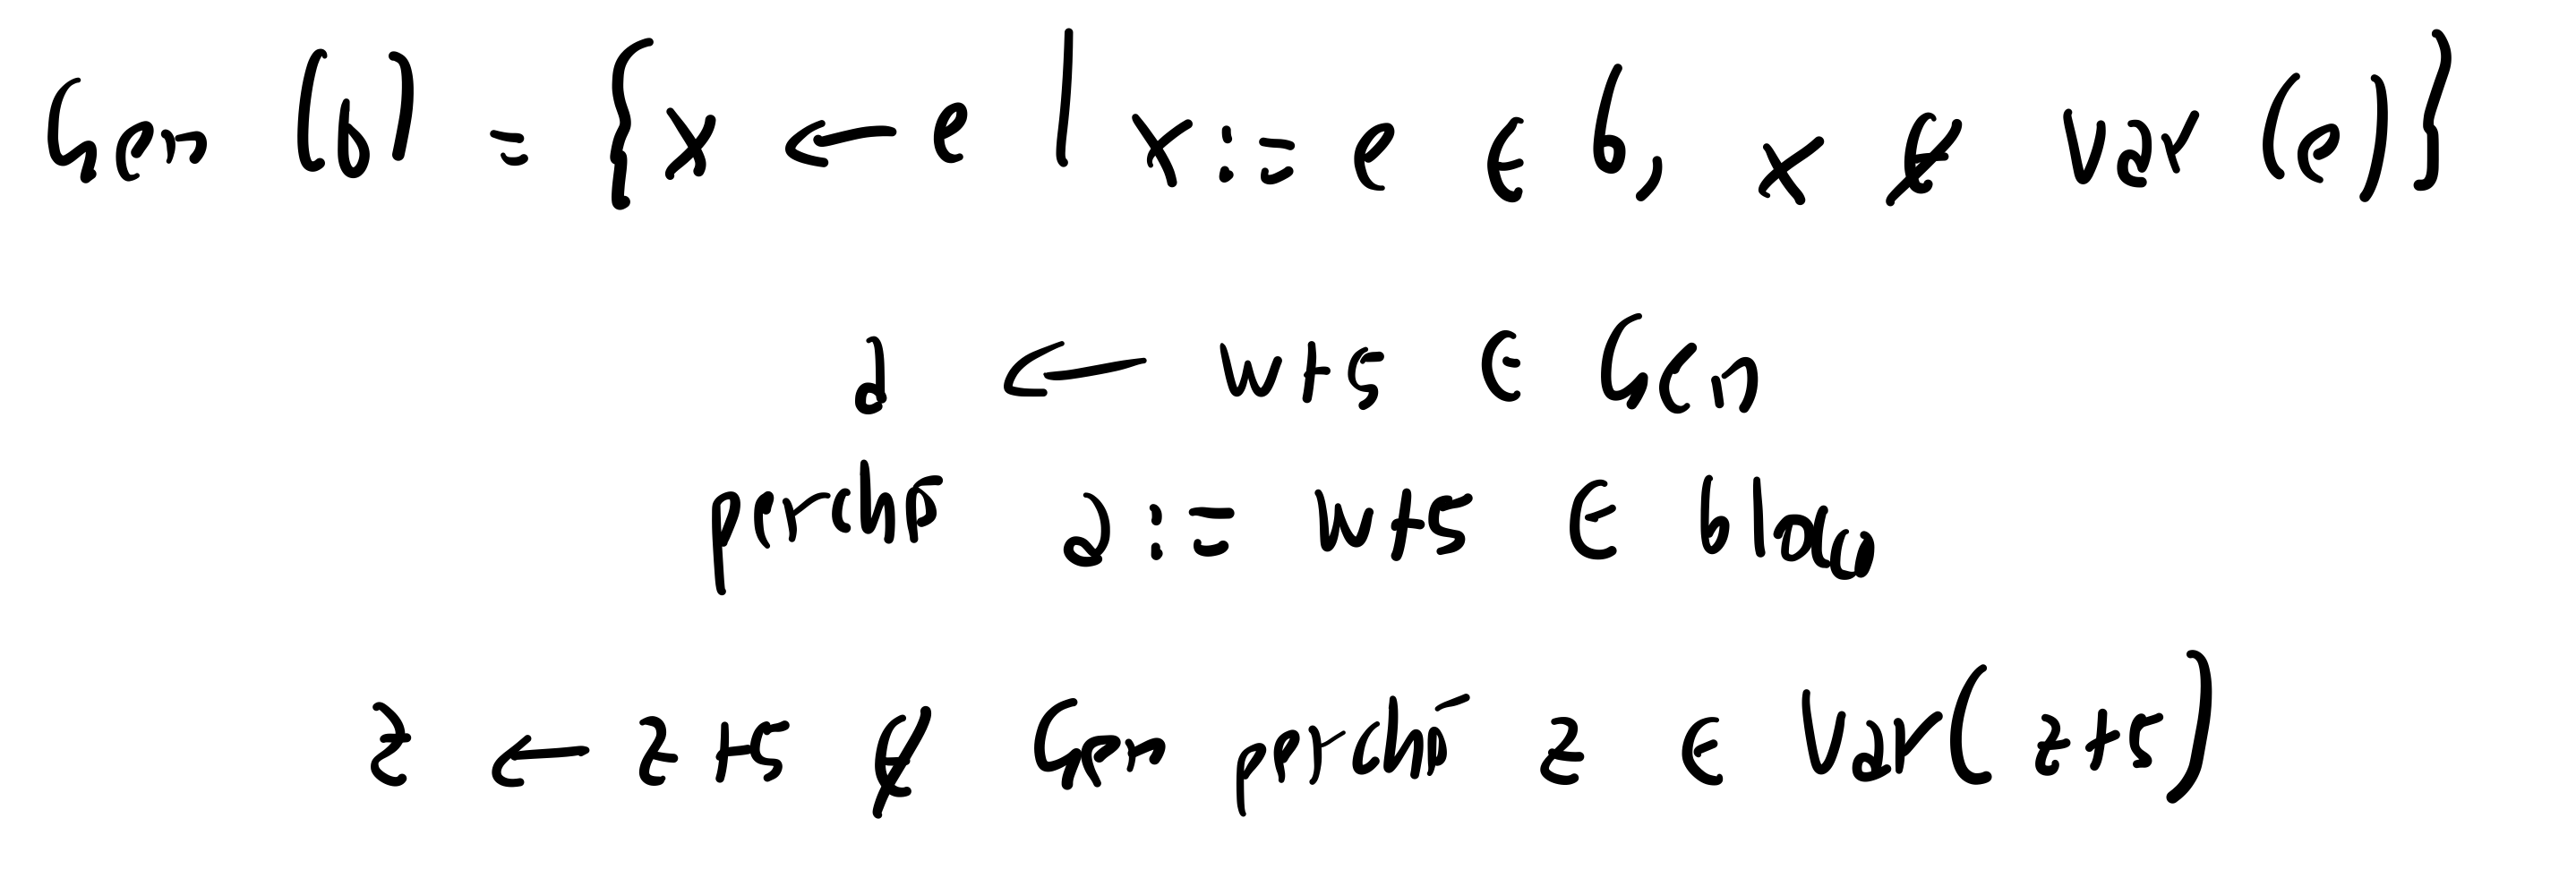 Gen (b) = {x ← e | x := e ∈ b, x ∉ Var (e)}
a ← w+5 ∈ Gen
perché a := w+5 ∈ blocco
z ← z+5 ∉ Gen perché z ∈ Var(z+5)